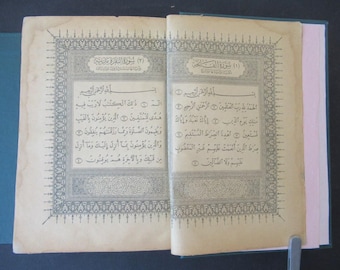 (١) سورة الفاتحة مكية
بسم الله الرحمن الرحيم
الحمد لله رب العلمين الرحمن الرحيم ملك
يوم الدين إياك نعبد وإياك
نستعين اهدنا الصراط المستقيم
صراط الذين أنعمت عليهم غير المغضوب
عليهم ولا الضالين
(٢) سورة البقرة مدنية
بسم الله الرحمن الرحيم
الم ذلك الكتب لا ريب فيه
هدى للمتقين الذين يؤمنون بالغيب
ويقيمون الصلوة ومما رزقنهم ينفقون
والذين يؤمنون بما أنزل إليك وما أنزل
من قبلك وبالآخرة هم يوقنون